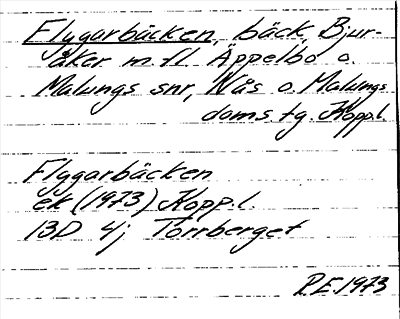 Flygarbäcken, bäck, Bjur-
åker m.fl. Äppelbo o.
Malungs snr, Nås o. Malungs
doms. tg. Kopp.l.
Flygarbäcken
ek (1973) Kopp.l.
13D 4j Torrberget
P.E. 1973